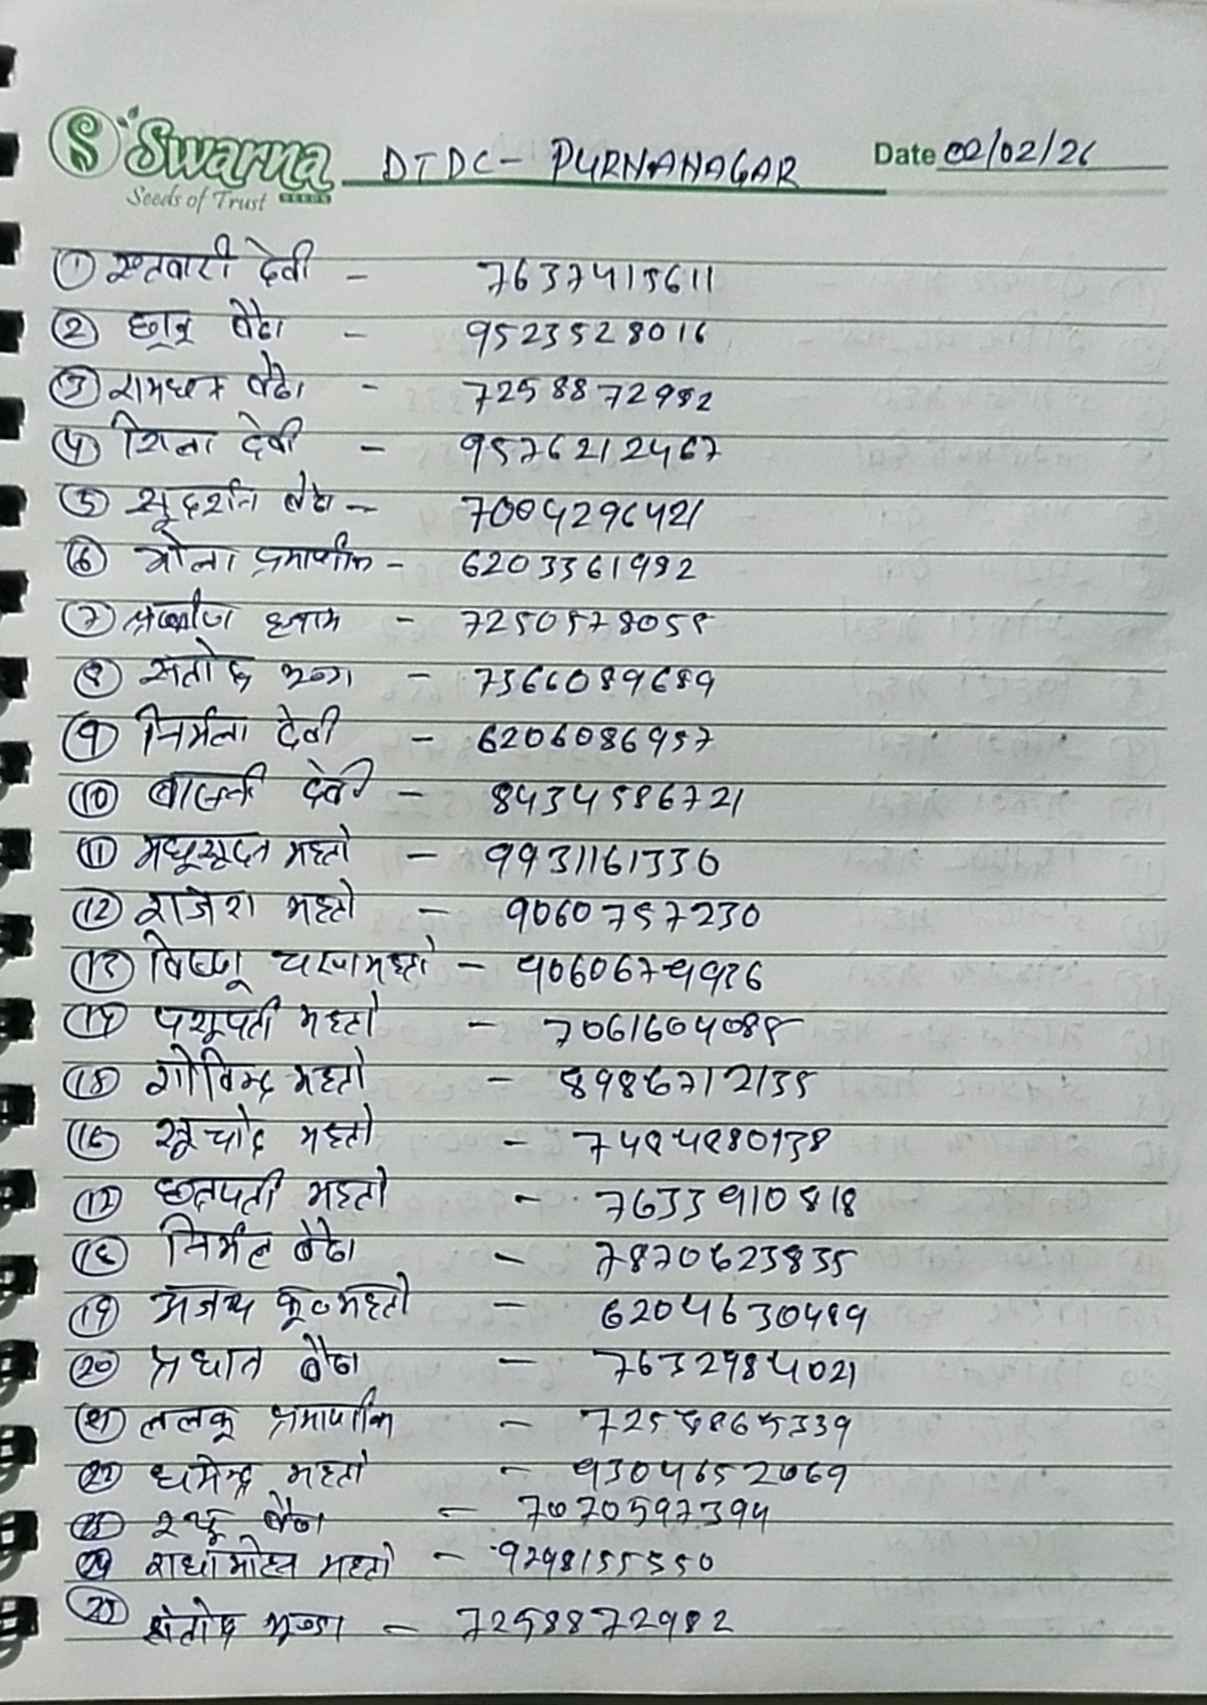 Swarna
Seeds of Trust SEEDS
DTDC - PURNANAGAR
Date 02/02/26
① देवी - 7637415611
② छान्नु बैठा - 9523528016
③ बैठा - 7258872982
④ शिला देवी - 9576212467
⑤ सूदर्शन बैठा - 7004296421
⑥ भोला प्रमाणीक - 6203361992
⑦ - 7250578058
⑧ संतोष भूण्डा - 7366089689
⑨ निर्मला देवी - 6206086957
⑩ देवी - 8434586721
⑪ मधुसूदन महतो - 9931161330
⑫ राजेश महतो - 9060757230
⑬ विष्णू चरण महतो - 9060679936
⑭ पशूपती महतो - 7061604088
⑮ गोविन्द महतो - 8986712135
⑯ महतो - 7484880138
⑰ छत्रपती महतो - 7633910818
⑱ निर्मल बैठा - 7870623835
⑲ अजय कू० महतो - 6204630489
⑳ प्रधान बैठा - 7632984021
㉑ ललकू प्रमाणीक - 7258865339
㉒ धर्मेन्द्र महतो - 9304652069
㉓ बैठा - 7070597394
㉔ राधामोहन महतो - 9298155550
㉕ संतोष भूण्डा - 7258872982